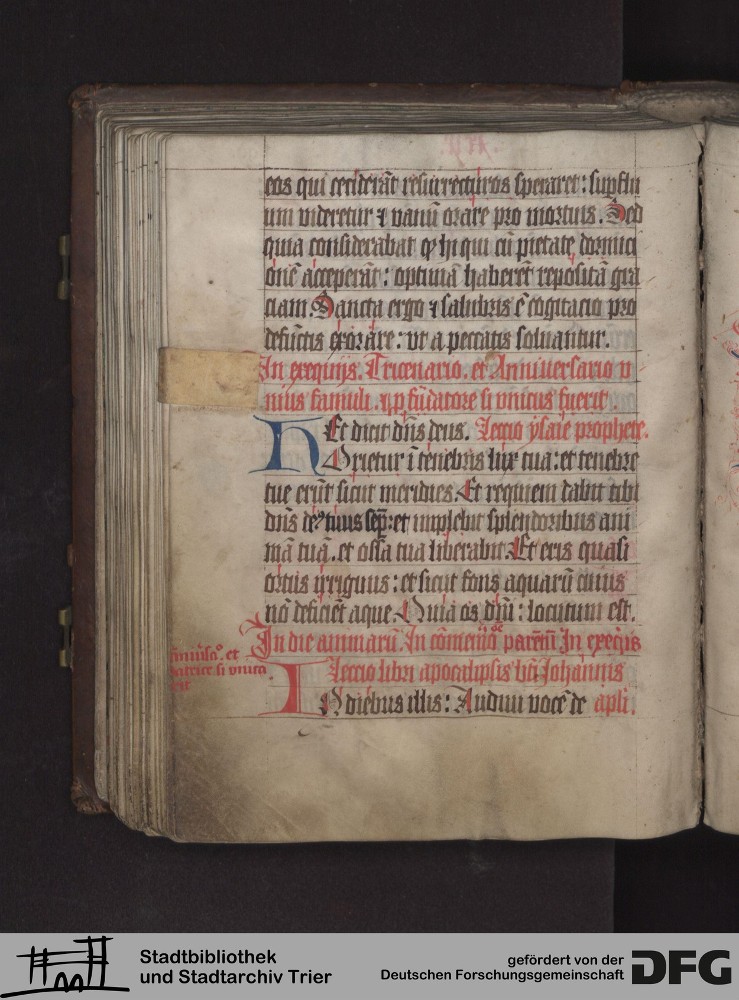 eos qui ceciderāt resurrecturos speraret: supflu
um videretur ⁊ vanū orare pro mortuis. Sed
quia considerabat ꝙ hi qui cū pietate dormici
onē acceperāt: optimā haberēt repositā gra
ciam. Sancta ergo ⁊ salubris ē cogitacio pro
defunctis exorare: vt a peccatis soluantur.
In exequijs. Tricenario. et Anniuersario v
nius famuli. ⁊ ꝓ fūdatore si vnicus fuerit.
HEt dicit dn̄s deus. Lectio ysaie prophete.
Orietur ī tenebris lux tua: et tenebre
tue erūt sicut meridies. Et requiem dabit tibi
dn̄s deꝰ tuus sep̄: et implebit splendoribus ani
mā tuā. et ossa tua liberabit. Et eris quasi
ortus irriguus: et sicut fons aquarū cuius
nō deficiēt aque. Quia os dn̄i: locutum est.
In die animarū. In parentū In exeq̄is
et
si vnica
Lectio libri apocalipsis bt̄i Johannis
IN diebus illis: Audiui vocē de apl̄i.
Stadtbibliothek
und Stadtarchiv Trier
gefördert von der
Deutschen Forschungsgemeinschaft
DFG